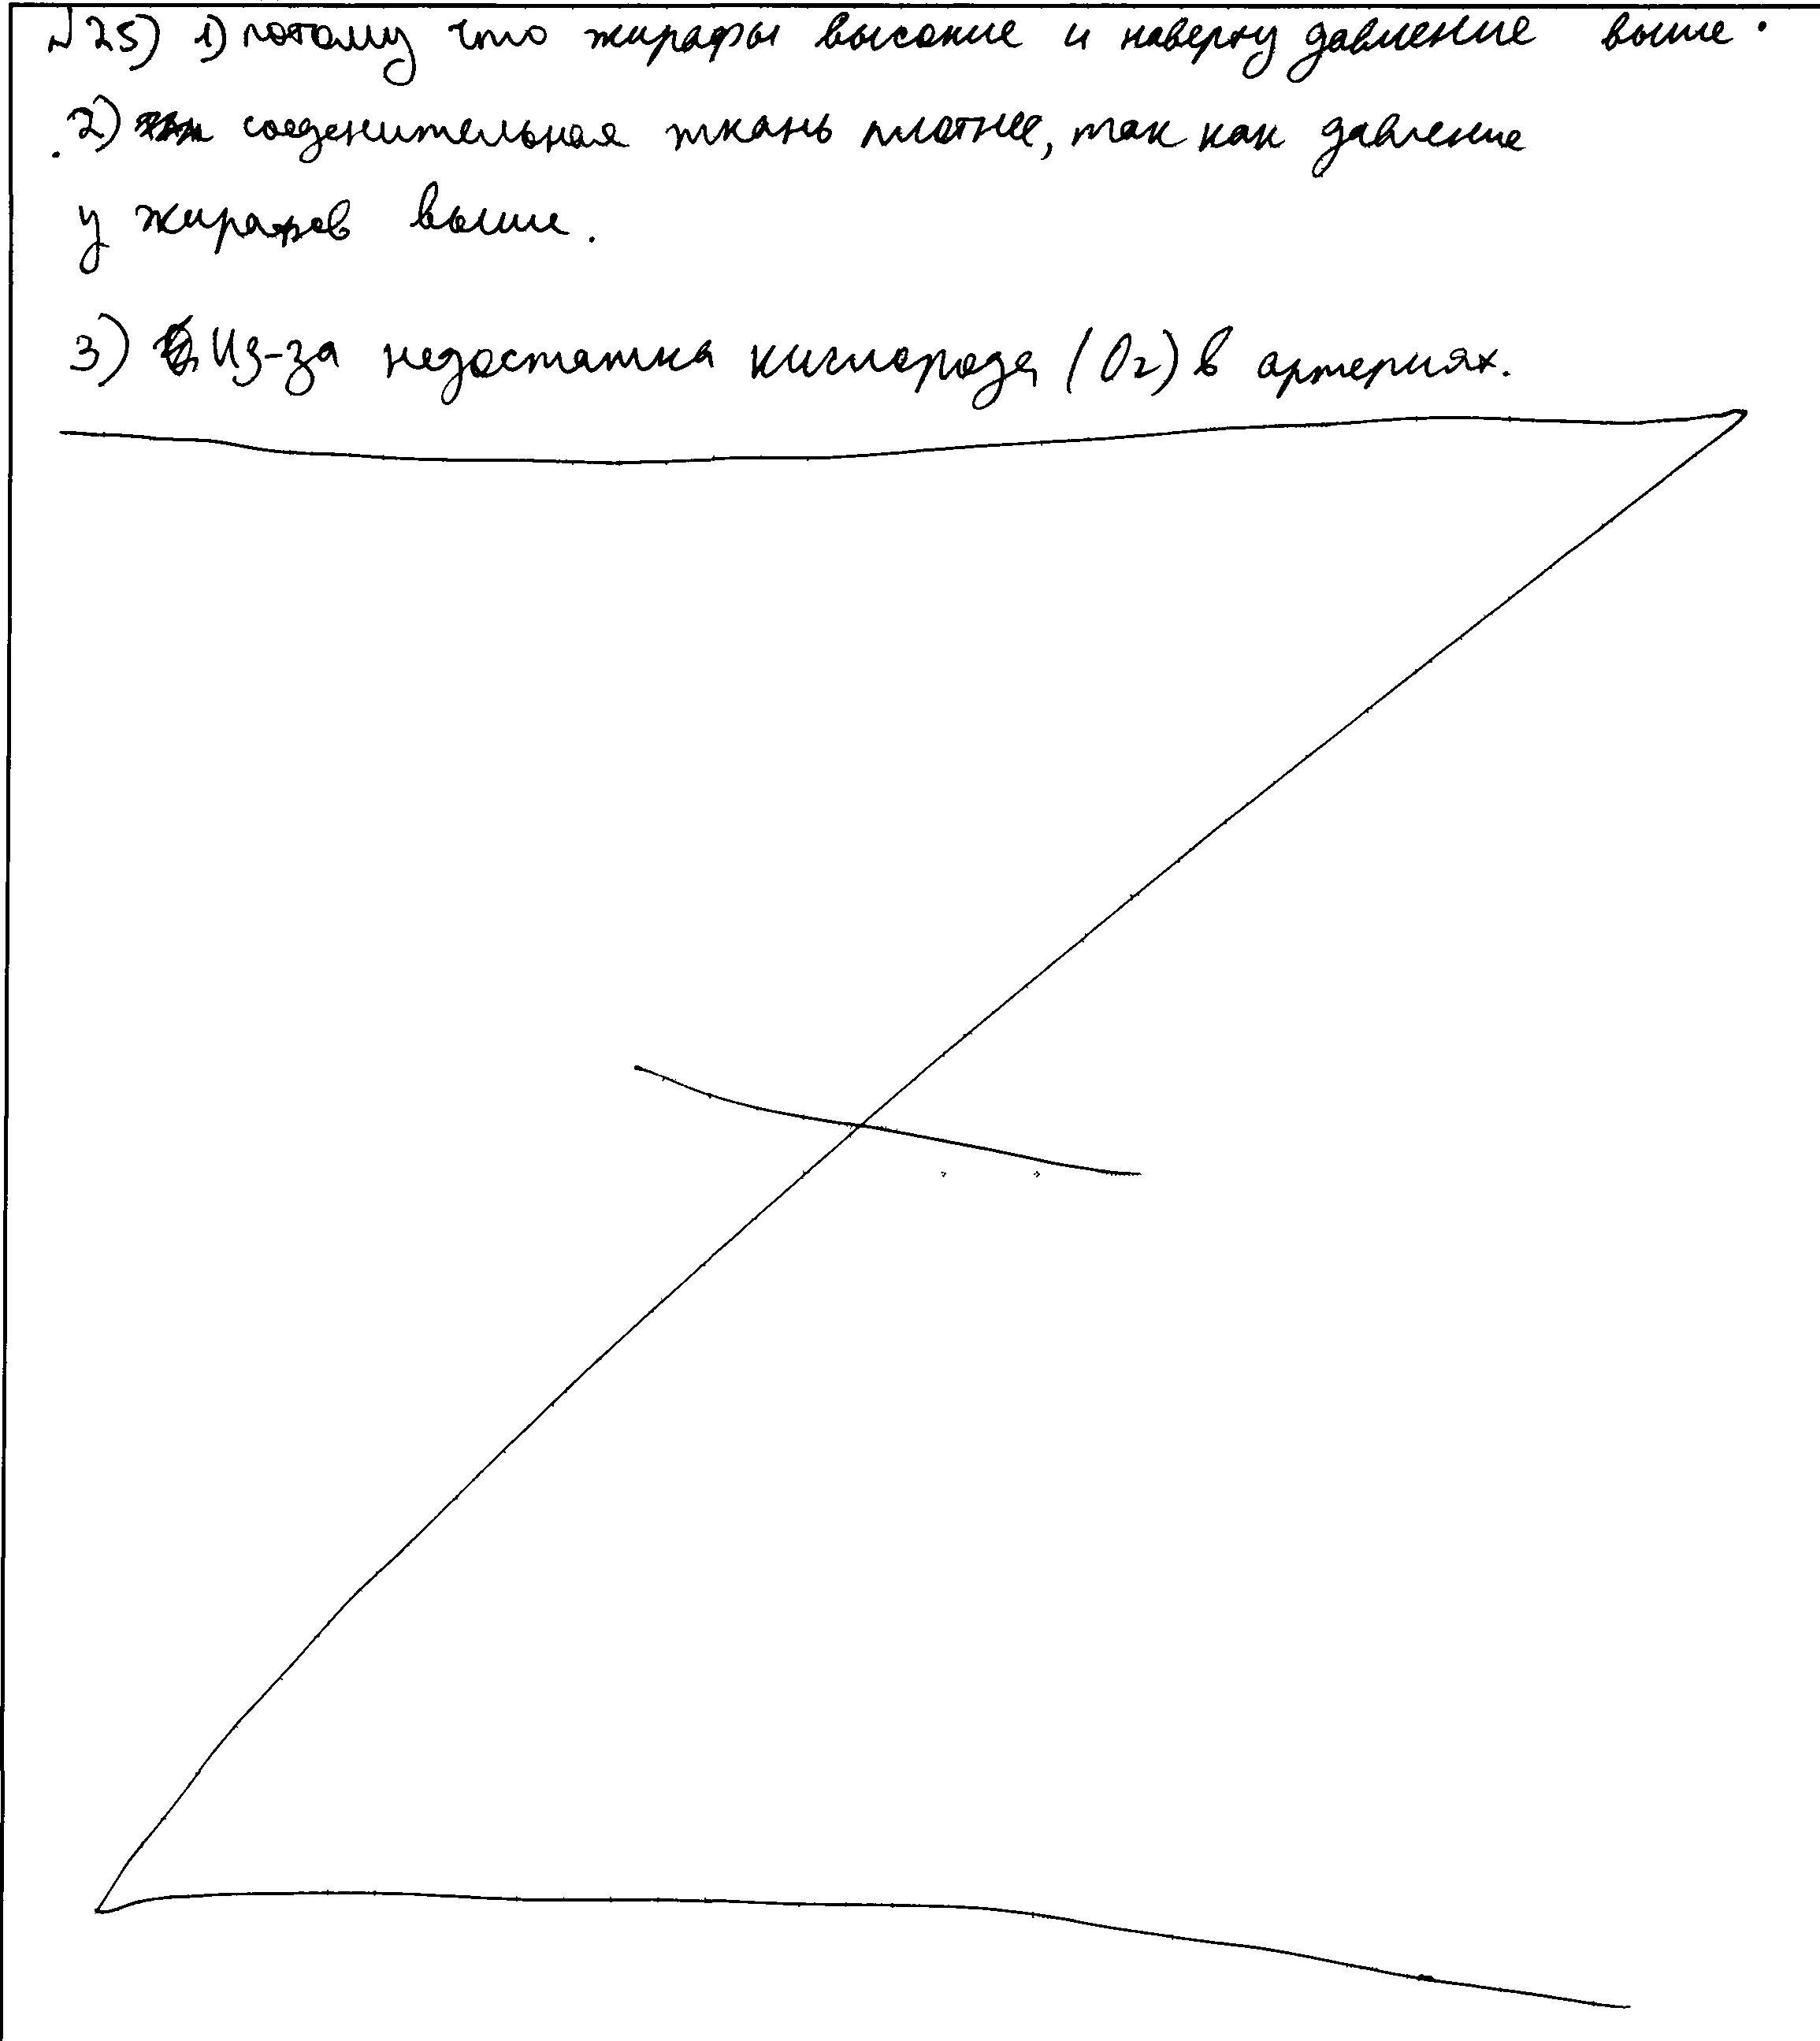 №25) 1) потому что жирафы высокие и наверху давление выше.
2) соеденительная ткань плотнее, так как давление
у жирафов выше.
3) Из-за недостатка кислорода (O2) в артериях.